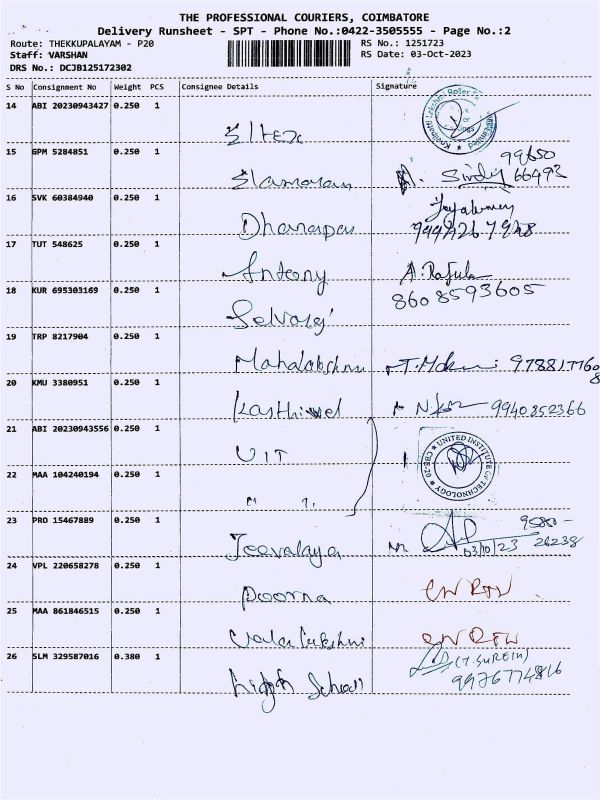 THE PROFESSIONAL COURIERS, COIMBATORE
Delivery Runsheet - SPT - Phone No.:0422-3505555 - Page No.:2
Route: THEKKUPALAYAM - P20 RS No.: 1251723
Staff: VARSHAN RS Date: 03-Oct-2023
DRS No.: DCJB125172302
S No Consignment No Weight PCS Consignee Details Signature
14 ABI 20230943427 0.250 1
15 GPM 5284851 0.250 1
99650
66493
16 SVK 60384940 0.250 1
Dhanapal
17 TUT 548625 0.250 1
Antony A.Rafula
18 KUR 695303169 0.250 1 8608593605
Selvaraj
19 TRP 8217904 0.250 1
Mahalakshmi
20 KMU 3380951 0.250 1
Karthivel 9940852366
21 ABI 20230943556 0.250 1
UIT
UNITED INSTITUTE OF TECHNOLOGY
22 MAA 104240194 0.250 1
23 PRO 15467889 0.250 1
Jeevalaya 03/10/23
24 VPL 220658278 0.250 1
Poorna
25 MAA 861846515 0.250 1
26 SLM 329587016 0.380 1
(T.SUREIN)
9976774816
School